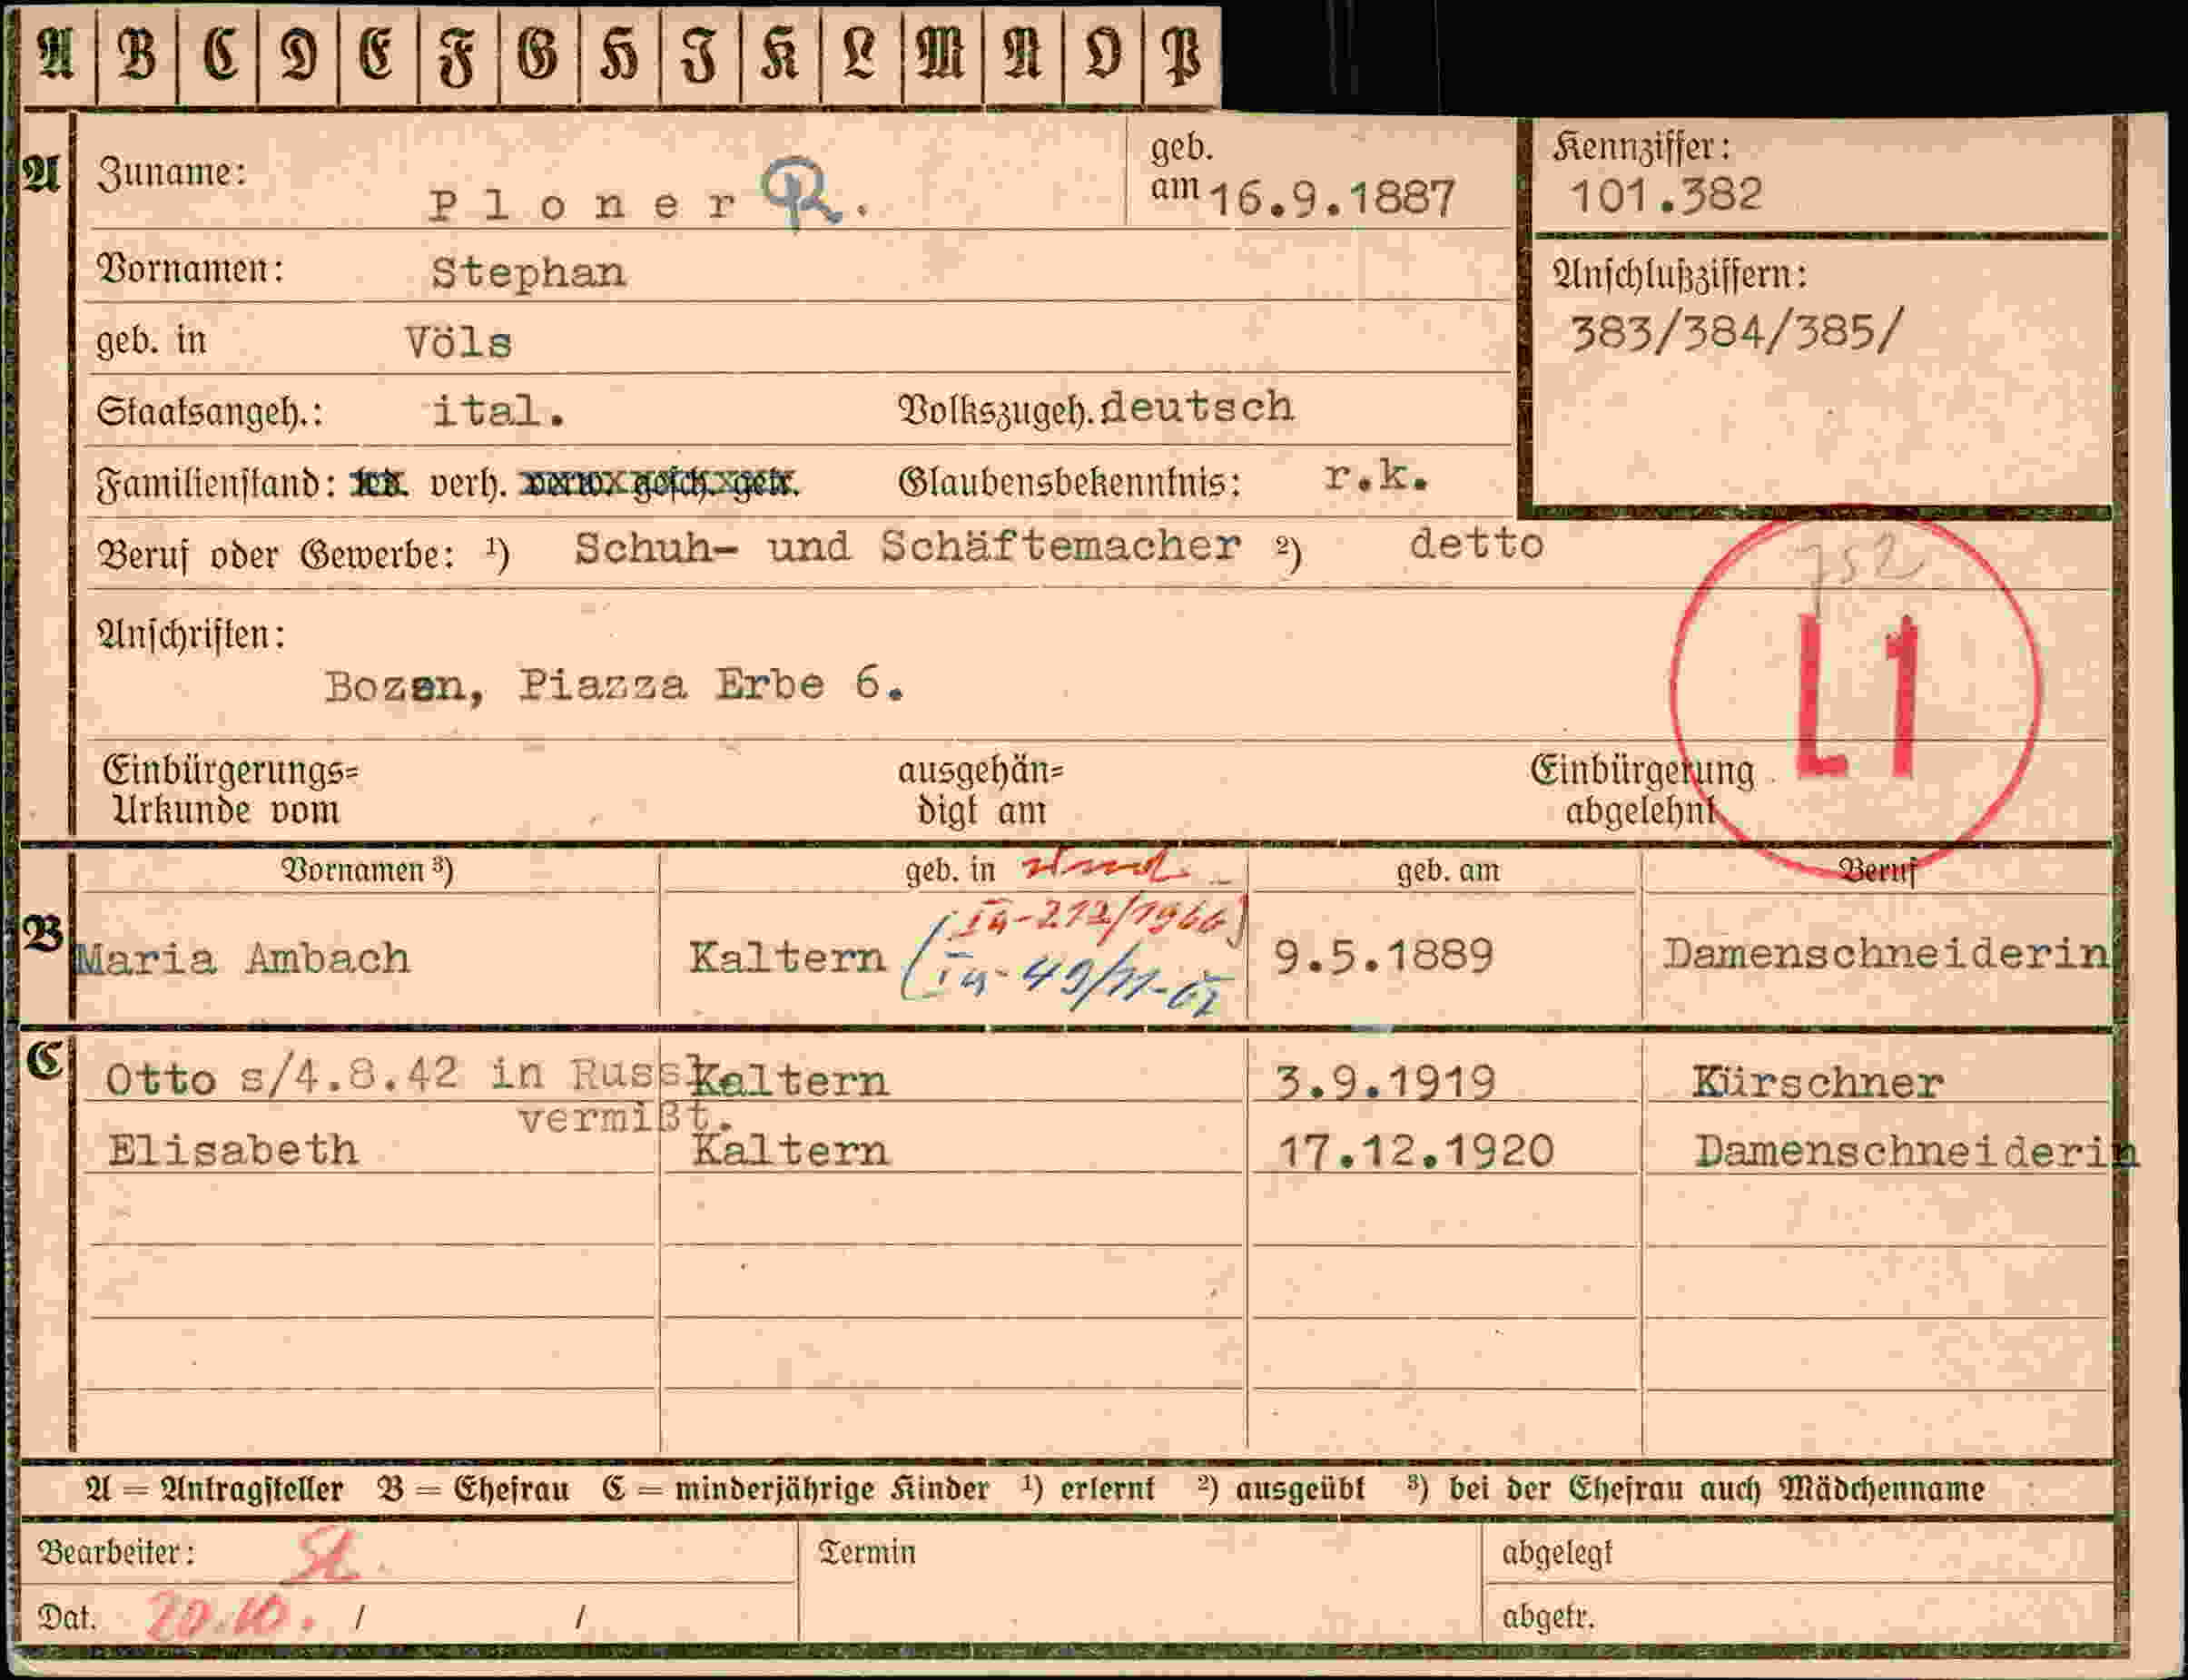 A B C D E F G H I K L M N O P
A Zuname: Ploner R.
geb. am 16.9.1887
Kennziffer:
101.382
Vornamen: Stephan
Anschlußziffern:
383/384/385/
geb. in Völs
Staatsangeh.: ital. Volkszugeh. deutsch
Familienstand: led. verh. verw. gesch. getr. Glaubensbekenntnis: r.k.
Beruf oder Gewerbe: ¹) Schuh- und Schäftemacher ²) detto
752
L1
Anschriften:
Bozen, Piazza Erbe 6.
Einbürgerungs= ausgehän= Einbürgerung
Urkunde vom digt am abgelehnt
Vornamen ³) geb. in geb. am Beruf
B Maria Ambach Kaltern 9.5.1889 Damenschneiderin
C Otto s/4.8.42 in Russ Kaltern 3.9.1919 Kürschner
vermißt.
Elisabeth Kaltern 17.12.1920 Damenschneiderin
A = Antragsteller B = Ehefrau C = minderjährige Kinder ¹) erlernt ²) ausgeübt ³) bei der Ehefrau auch Mädchenname
Bearbeiter: Termin abgelegt
Dat. 20.10. / / abgetr.